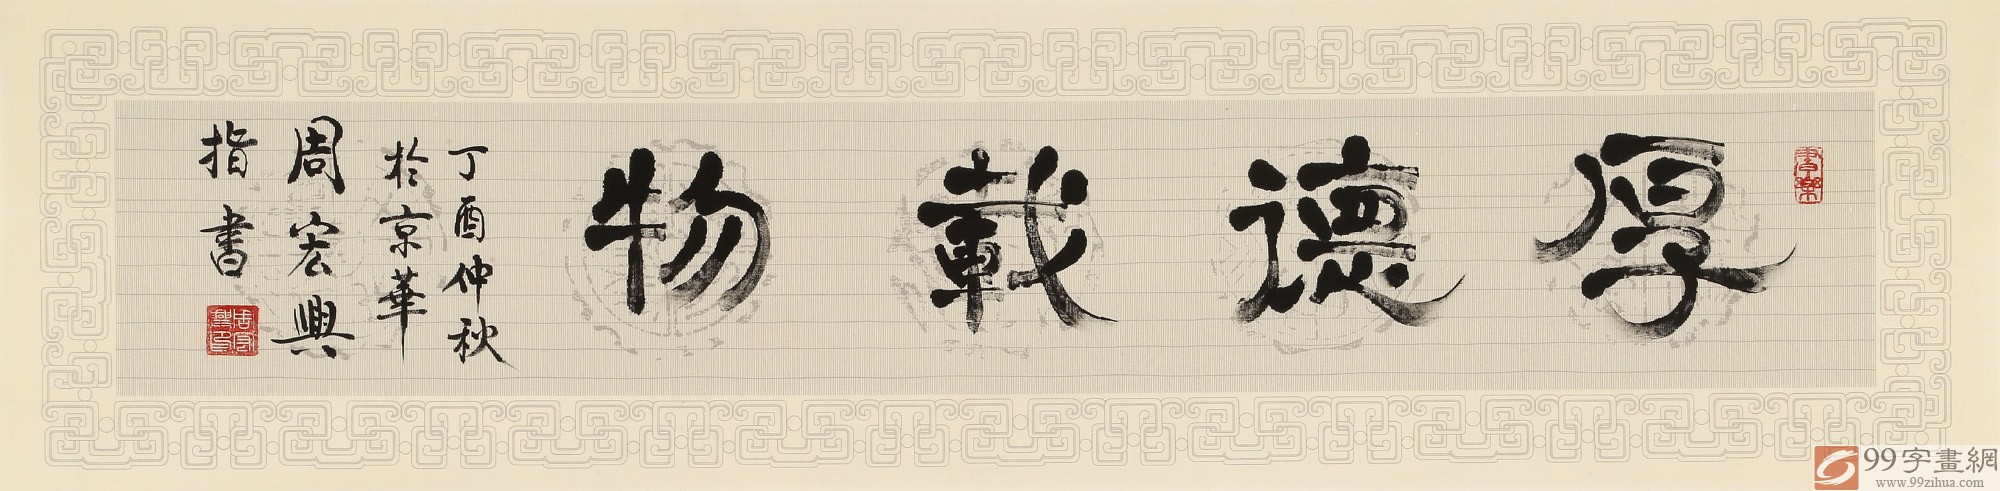 厚德載物
丁酉仲秋
於京華
周宏興
指書
99字畫網
www.99zihua.com